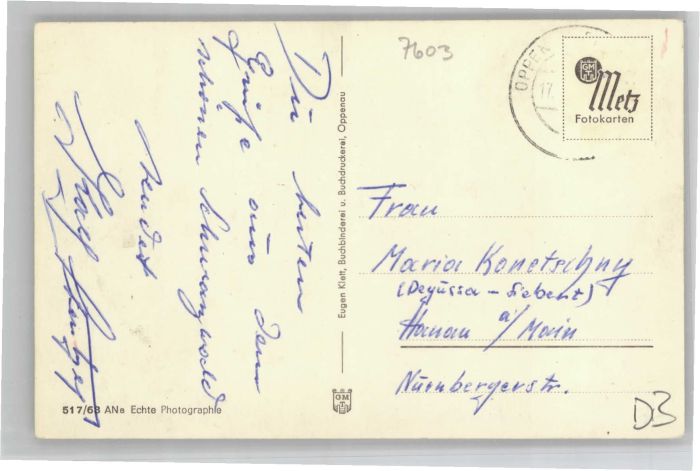 Die besten
Grüße aus dem
schönen Schwarzwald
sendet
Eugen Klett, Buchbinderei u. Buchdruckerei, Oppenau
517/68 ANe Echte Photographie
GM
7603
OPPEN
17.
GM
Metz
Fotokarten
Frau
Maria Konetschny
(Degussa - Siebert)
Hanau a/Main
Nürnbergerstr.
D3